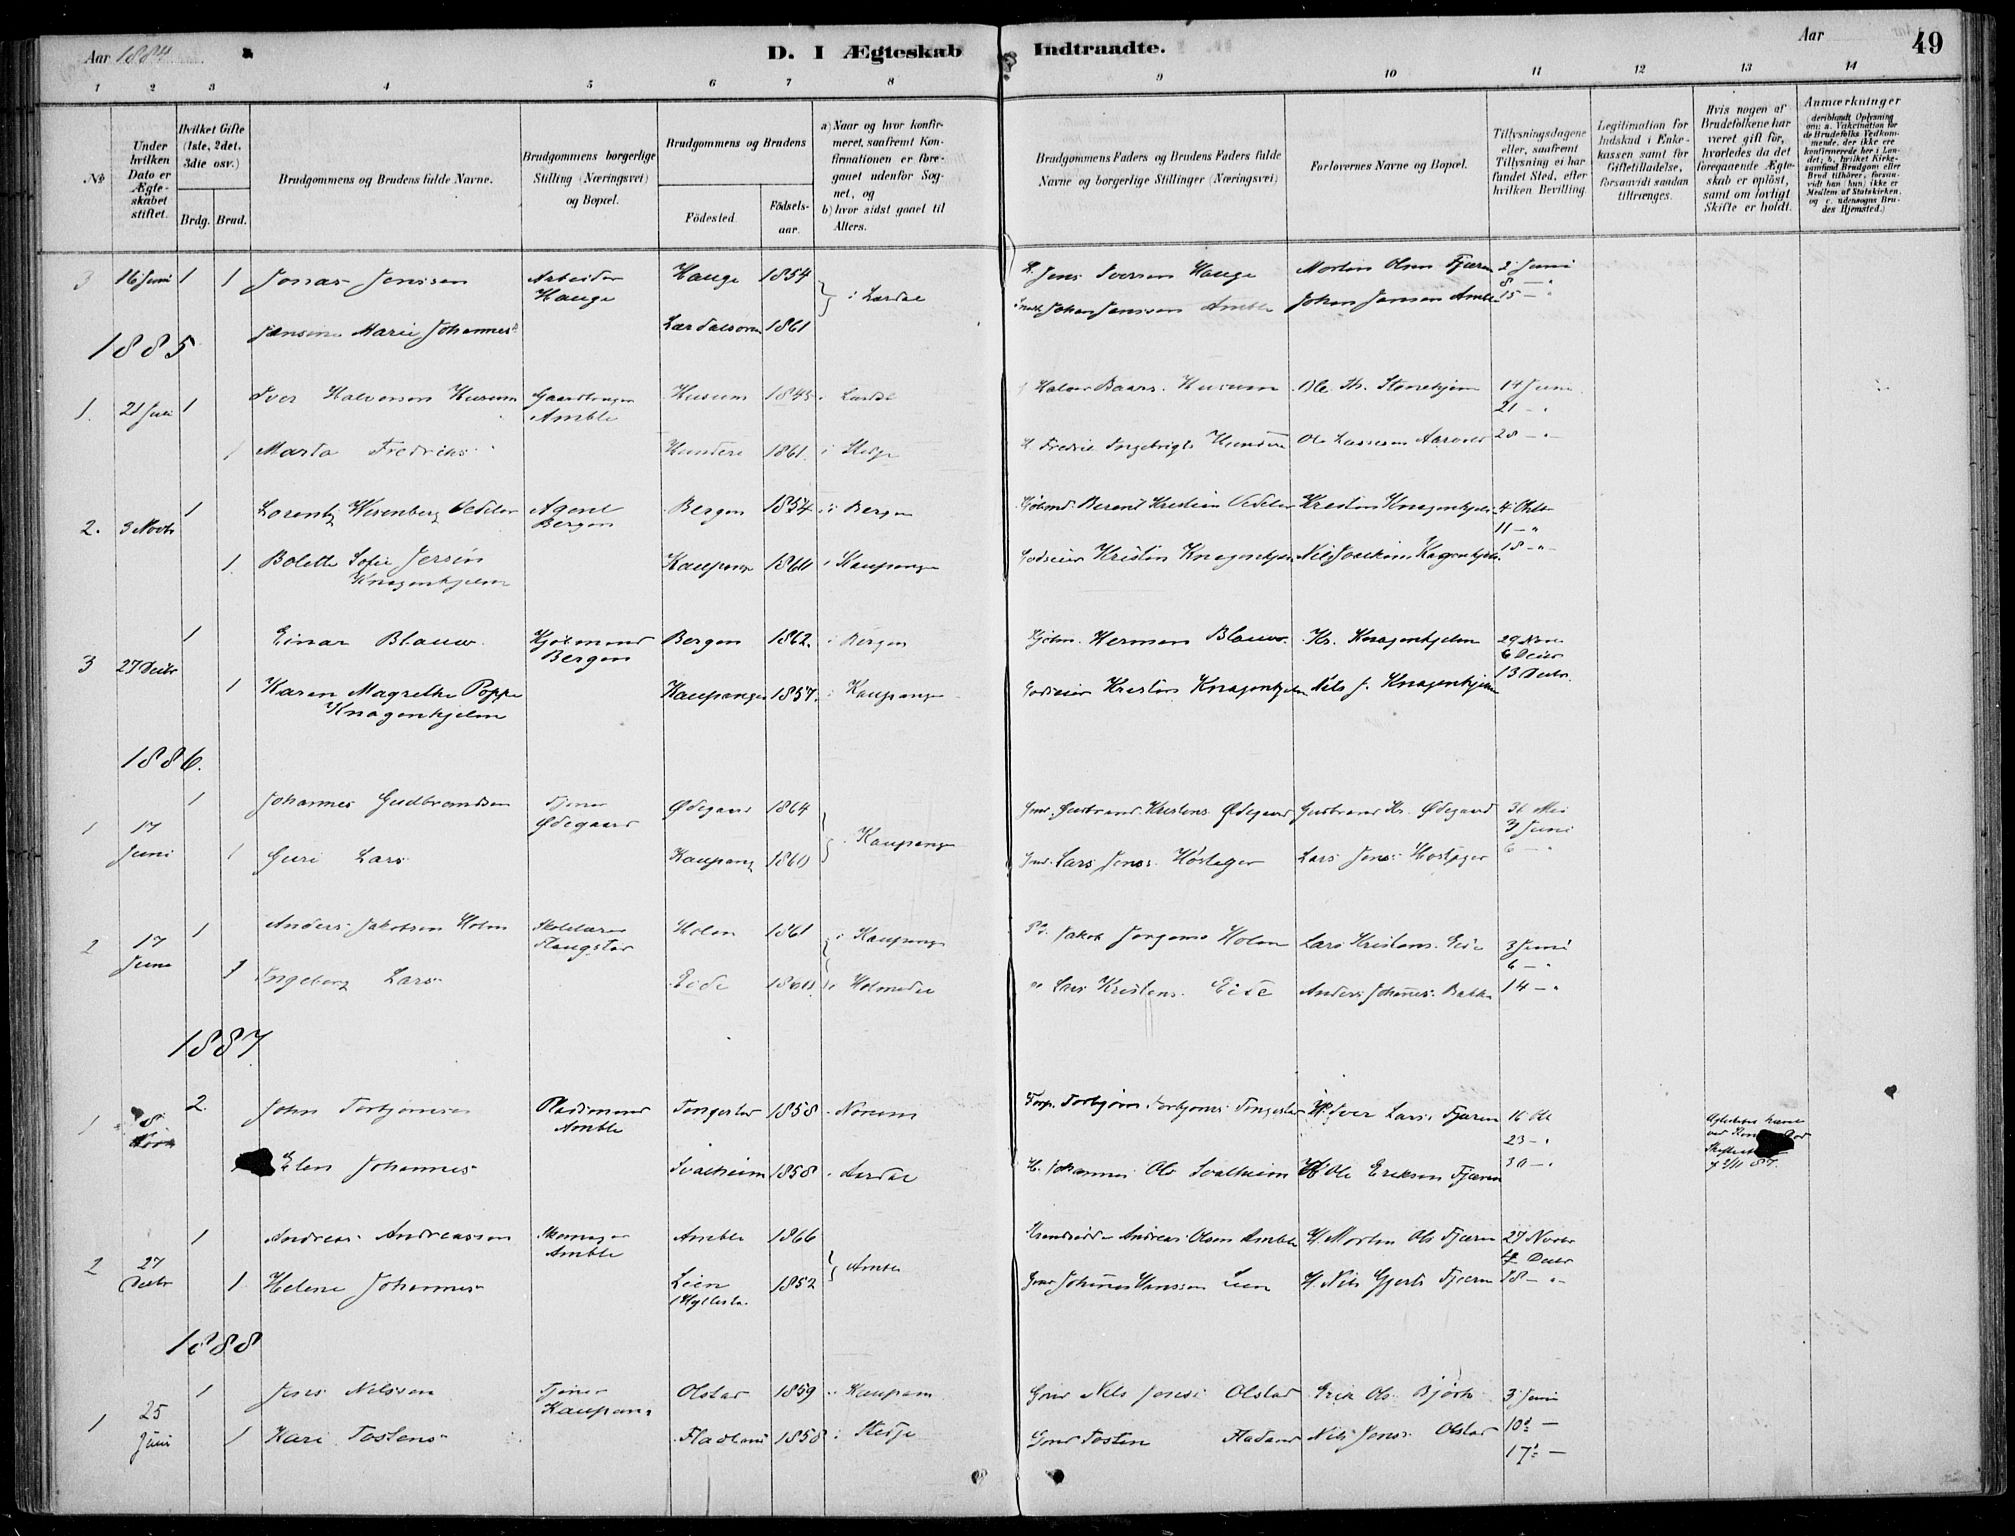 Aar 1884
D. I Ægteskab Indtraadte.
Aar
49
1 2 3 4 5 6 7 8 9 10 11 12 13 14
No
Under hvilken Dato er Ægteskabet stiftet.
Hvilket Gifte (1ste, 2det, 3die osv.)
Brdg. Brud.
Brudgommens og Brudens fulde Navne.
Brudgommens borgerlige Stilling (Næringsvei) og Bopæl.
Brudgommens og Brudens
Fødested.
Fødselsaar.
a) Naar og hvor konfirmeret, saafremt Konfirmationen er foregaaet udenfor Sognet, og
b) hvor sidst gaaet til Alters.
Brudgommens Faders og Brudens Faders fulde Navne og borgerlige Stillinger (Næringsvei)
Forlovernes Navne og Bopæl.
Tillysningsdagene eller, saafremt Tillysning ei har fundet Sted, efter hvilken Bevilling.
Legitimation for Indskud i Enkekassen samt for Giftetilladelse, forsaavidt saadan tiltrænges.
Hvis nogen af Brudefolkene har været gift før, hvorledes da det foregaaende Ægteskab er opløst, samt om lovligt Skifte er holdt.
Anmærkninger (deriblandt Oplysning om: a. Vakcination for de Brudefolks Vedkommende, der ikke ere konfirmerede her i Landet; b. hvilket Kirkesamfund Brudgom eller Brud tilhører, forsaavidt han (hun) ikke er Medlem af Statskirken, og c. udensogns Brudes Hjemsted.)
3 16 Juni 1 1 Jonas Jenssen Arbeider Hauge Hauge 1854 i Lærdal Jens Iversen Hauge Morten Olsen Fjæren 2 Juni
8 -"
Jensine Marie Johannesd Lærdalsøren 1861 Johan Jansen Amble Johan Jansen Amble 15 -"
1885
1. 21 Juli 1 Iver Halvorsen Husum Gaardbruger Amble Husum 1845 i Lærdal Halvor Baars. Husum Ole Th. Stenehjem 14 Juni
21 -"
1 Marta Fredriks Hundere 1861 i Stedje Fredrik Ingebrigts Hundere Ole Lassesen 28 -"
2. 3 Novbr 1 Lorentz Wesenberg Vedeler Agent Bergen Bergen 1854 i Bergen Kjøbmd. Berent Kristian Vedeler Kristen Knagenhjelm 4 Oktbr
11 -"
1. Bolette Sofie Jersin Knagenhjelm Kaupanger i Kaupanger Godseier Kristen Knagenhjelm Nils Joachim Knagenhjelm 18 -"
3 27 Decbr 1 Einar Blauw. Kjøbmand Bergen Bergen 1862. i Bergen Kjøbm. Herman Blauw. Kr. Knagenhjelm 29 Nov.
6 Decbr
1 Karen Magrethe Poppe Knagenhjelm Kaupanger 1857. i Kaupanger Godseier Kristen Knagenhjelm Nils J. Knagenhjelm 13 Decbr.
1886.
1 17 Juni 1 Johannes Gudbrandsen Tjener Ødegaard Ødegaard 1864 i Kaupanger Gmd. Gudbrand Kristens. Ødegaard Gudbrand Kr. Ødegaard 31 Mai
3 Juni
1 Guri Lars Kaupang 1860 Gmd. Lars Jens. Høstager Lars Jens. Høstager 6 -"
2 17 Juni 1 Anders Jakobsen Holen Skolelærer Holen 1861 i Kaupanger Jakob Holen Lars Kristens. Eide 3 Juni
6 -"
1 Ingeborg Lars Eide Holmedal Lars Kristens. Eide Anders Johannes. Bakke 14 -"
1887
1 8 Novbr 2. John Torbjørnsen Pladsmand Amble Tingestad 1858 Norum Torbjørn Torbjørns Tingestad Iver Lars. Fjæren 16 Okt
23 -"
Elen Johannes Svalheim 1858 Lærdal Johannes Ols Svalheim H Ole Eriksen Fjæren 30 -"
2 27 Decbr 1 Andreas Andreassen Amble Amble 1866 Amble Andreas Olsen Amble H. Morten Ols Fjæren 27 Novbr
4 Decbr
1. Helene Johannes Leen (Hyllestad 1852 Gmd Johannes Hanssen Leen H. Nils Gjerts Fjæren 18 -"
1888
1 25 Juni 1 Jens Nilssen Tjener Kaupang Olstad 1859 Kaupang Gmd Nils Jenss Olstad Erik Ols. Bjørk 3 Juni
10 -
1 Kari Tostens Fladland 1858 i Stedje Gmd Tosten Fladland Nils Jens. Olstad 17 -